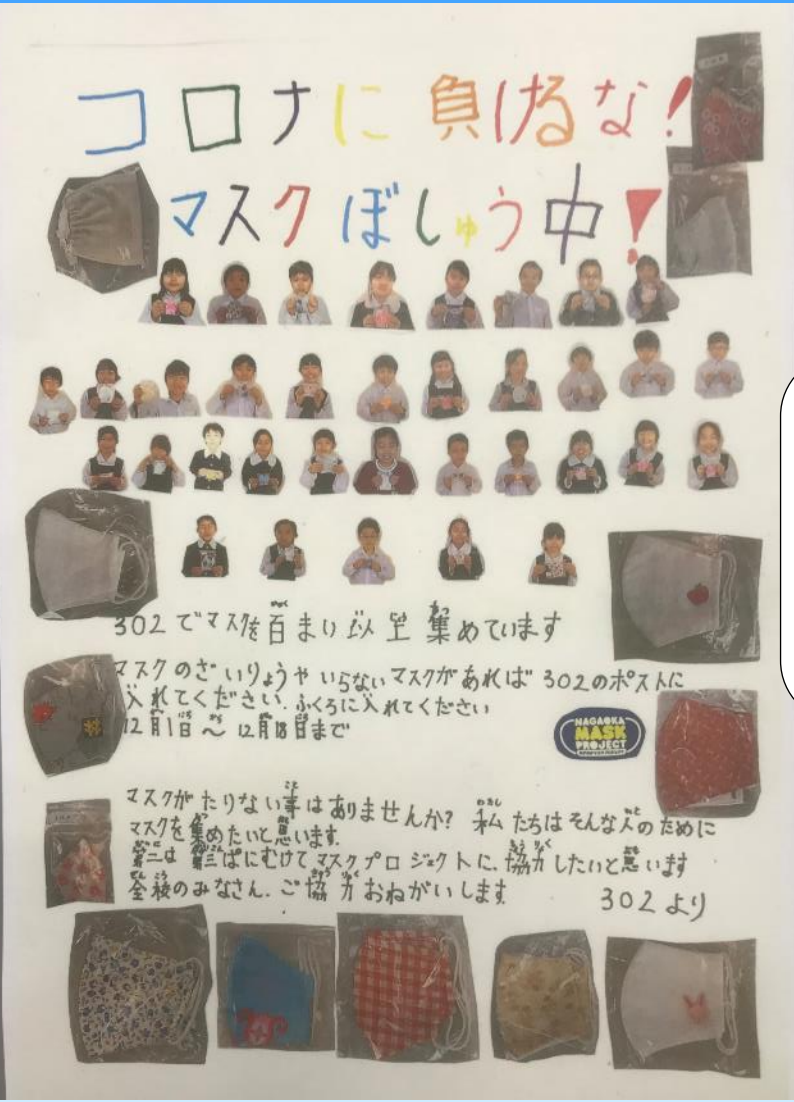 コロナに 負けるな!
マスク ぼしゅう中!
302でマスクを百まい以上 集めています
マスクのざいりょうや いらないマスクがあれば 302のポストに
入れてください. ふくろに入れてください
12月1日 ~ 12月18日まで
NAGAOKA
MASK
PROJECT
マスクがたりない事はありませんか? 私たちはそんな人のために
マスクを集めたいと思います.
第三ぱにむけてマスクプロジェクトに、協力したいと思います
全校のみなさん. ご協力おねがいします.
302より